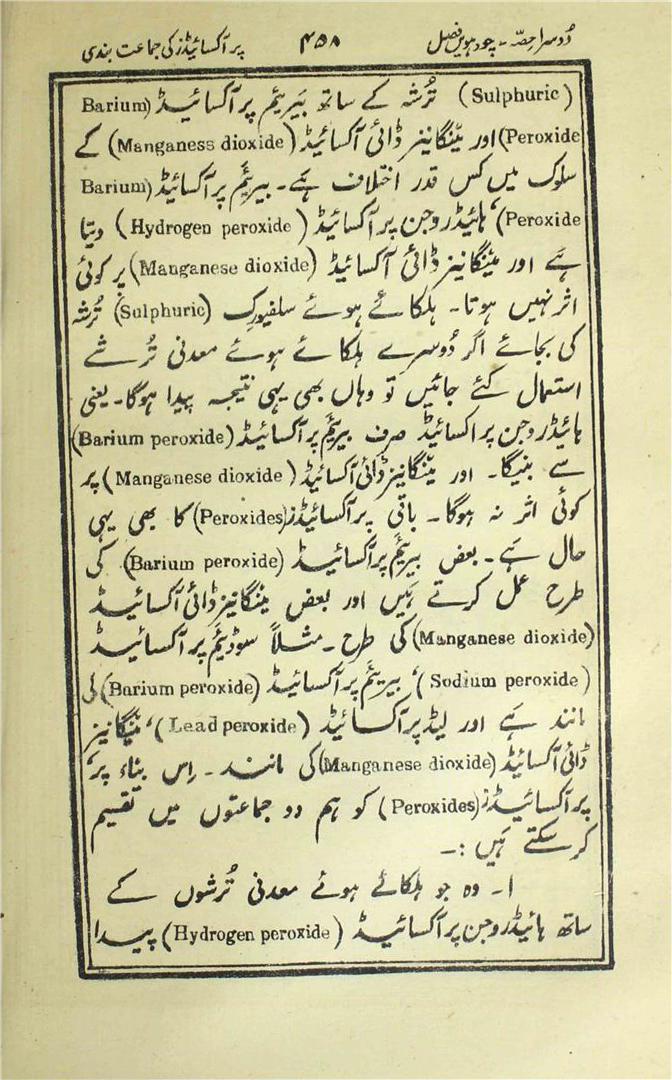 دُوسرا حِصّہ - چودھویں فصل ۴۵۸ پر آکسائیڈز کی جماعت بندی
(Sulphuric) تُرشہ کے ساتھ بَیریَم پر آکسائیڈ (Barium
Peroxide) اور مَینگانیز ڈائی آکسائیڈ (Manganess dioxide) کے
سلوک میں کس قدر اختلاف ہَے۔ بیریَم پر آکسائیڈ (Barium
Peroxide)، ہائیڈروجن پر آکسائیڈ (Hydrogen peroxide) دیتا
ہَے اور مَینگانیز ڈائی آکسائیڈ (Manganese dioxide) پر کوئی
اثر نہیں ہوتا۔ ہلکائے ہوئے سلفیورک (Sulphuric) تُرشہ
کی بجائے اگر دُوسرے ہلکائے ہوئے معدنی تُرشے
استعمال کئے جائیں تو وہاں بھی یہی نتیجہ پیدا ہوگا۔ یعنی
ہائیڈروجن پر اکسائیڈ صرف بیریَم پر آکسائیڈ (Barium peroxide)
سے بنیگا۔ اور مَینگانیز ڈائی آکسائیڈ (Manganese dioxide) پر
کوئی اثر نہ ہوگا۔ باقی پر آکسائیڈز (Peroxides) کا بھی یہی
حال ہَے۔ بعض بیریَم پر آکسائیڈ (Barium peroxide) کی
طرح عمل کرتے ہَیں اور بعض مَینگانیز ڈائی آکسائیڈ
(Manganese dioxide) کی طرح۔ مثلاً سوڈیَم پر آکسائیڈ
(Sodium peroxide)، بیریَم پر آکسائیڈ (Barium peroxide) کی
مانند ہَے اور لیڈ پر آکسائیڈ (Lead peroxide)، مَینگانیز
ڈائی آکسائیڈ (Manganese dioxide) کی مانند۔ اِس بناء پر،
پر آکسائیڈز (Peroxides) کو ہم دو جماعتوں میں تقسیم
کر سکتے ہَیں :۔
۱۔ وہ جو ہلکائے ہوئے معدنی تُرشوں کے
ساتھ ہائیڈروجن پر آکسائیڈ (Hydrogen peroxide) پیدا